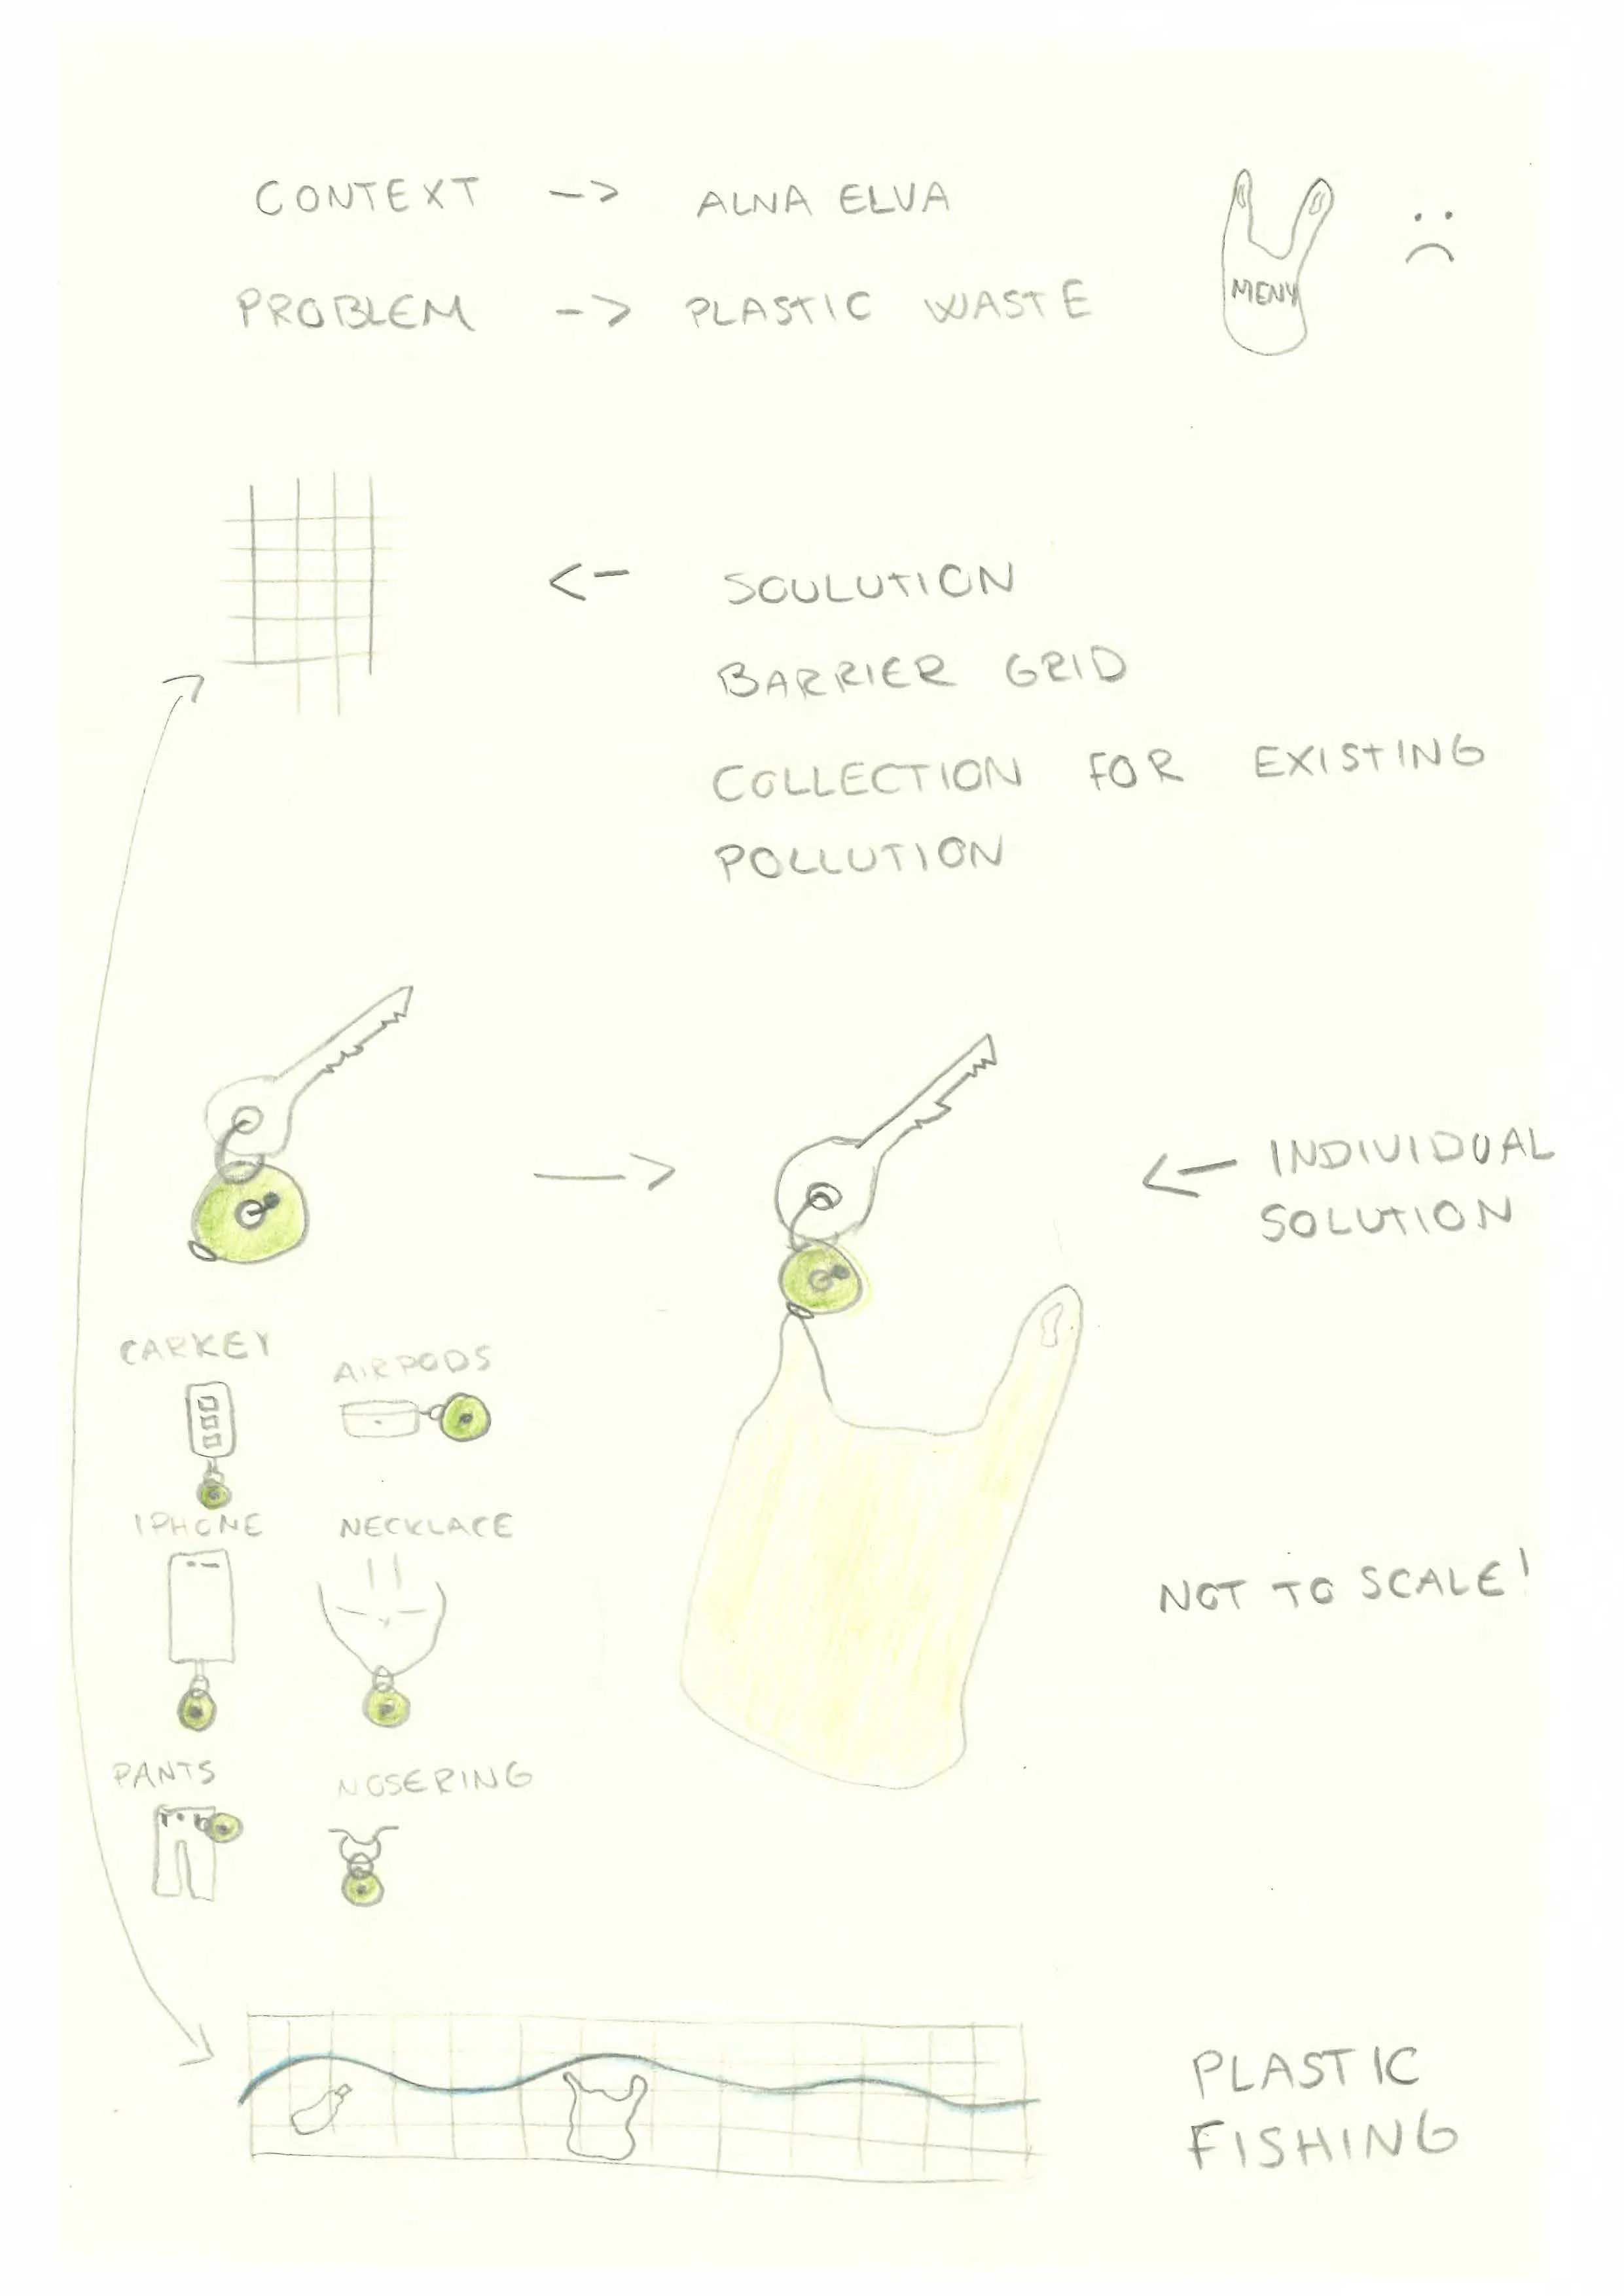 CONTEXT -> ALNA ELVA
PROBLEM -> PLASTIC WASTE
MENY
<- SOULUTION
BARRIER GRID
COLLECTION FOR EXISTING
POLLUTION
<- INDIVIDUAL
SOLUTION
CARKEY
AIRPODS
IPHONE
NECKLACE
NOT TO SCALE!
PANTS
NOSERING
PLASTIC
FISHING